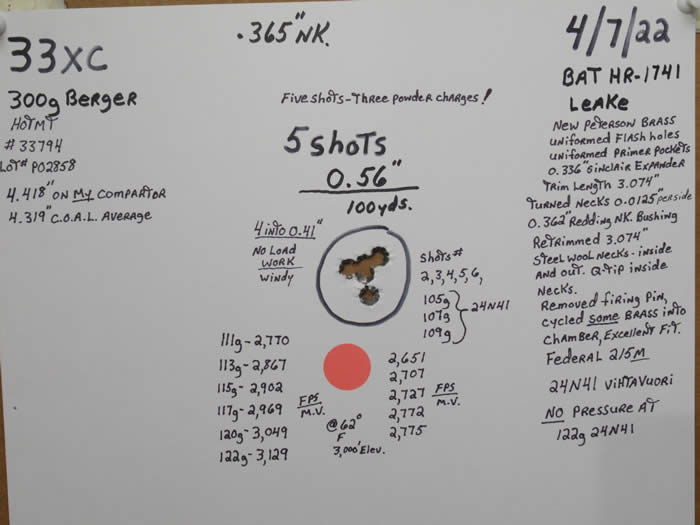 33XC
300g Berger
HOTMT
# 33794
LOT# P02858
4.418" ON MY COMPARTOR
4.319" C.O.A.L. AVERAGE
.365" NK.
FIVE SHOTS - THREE POWDER CHARGES!
5 SHOTS
0.56"
100yds.
4 INTO 0.41"
NO LOAD
WORK
WINDY
SHOTS#
2,3,4,5,6,
105g
107g
109g
24N41
111g - 2,770
113g - 2,867
115g - 2,902
117g - 2,969
120g - 3,049
122g - 3,129
FPS
M.V.
@62°
F
3,000' Elev.
2,651
2,707
2,727
2,772
2,775
FPS
M.V.
4/7/22
BAT HR-1741
LEAKE
NEW PETERSON BRASS
UNIFORMED FLASH HOLES
UNIFORMED PRIMER POCKETS
0.336" SINCLAIR EXPANDER
TRIM LENGTH 3.074"
TURNED NECKS 0.0125" PER SIDE
0.362" REDDING NK. BUSHING
RETRIMMED 3.074"
STEEL WOOL NECKS - INSIDE
AND OUT. QTIP INSIDE
NECKS.
REMOVED FIRING PIN,
CYCLED SOME BRASS INTO
CHAMBER, EXCELLENT FIT.
FEDERAL 215M
24N41 VIHTAVUORI
NO PRESSURE AT
122g 24N41